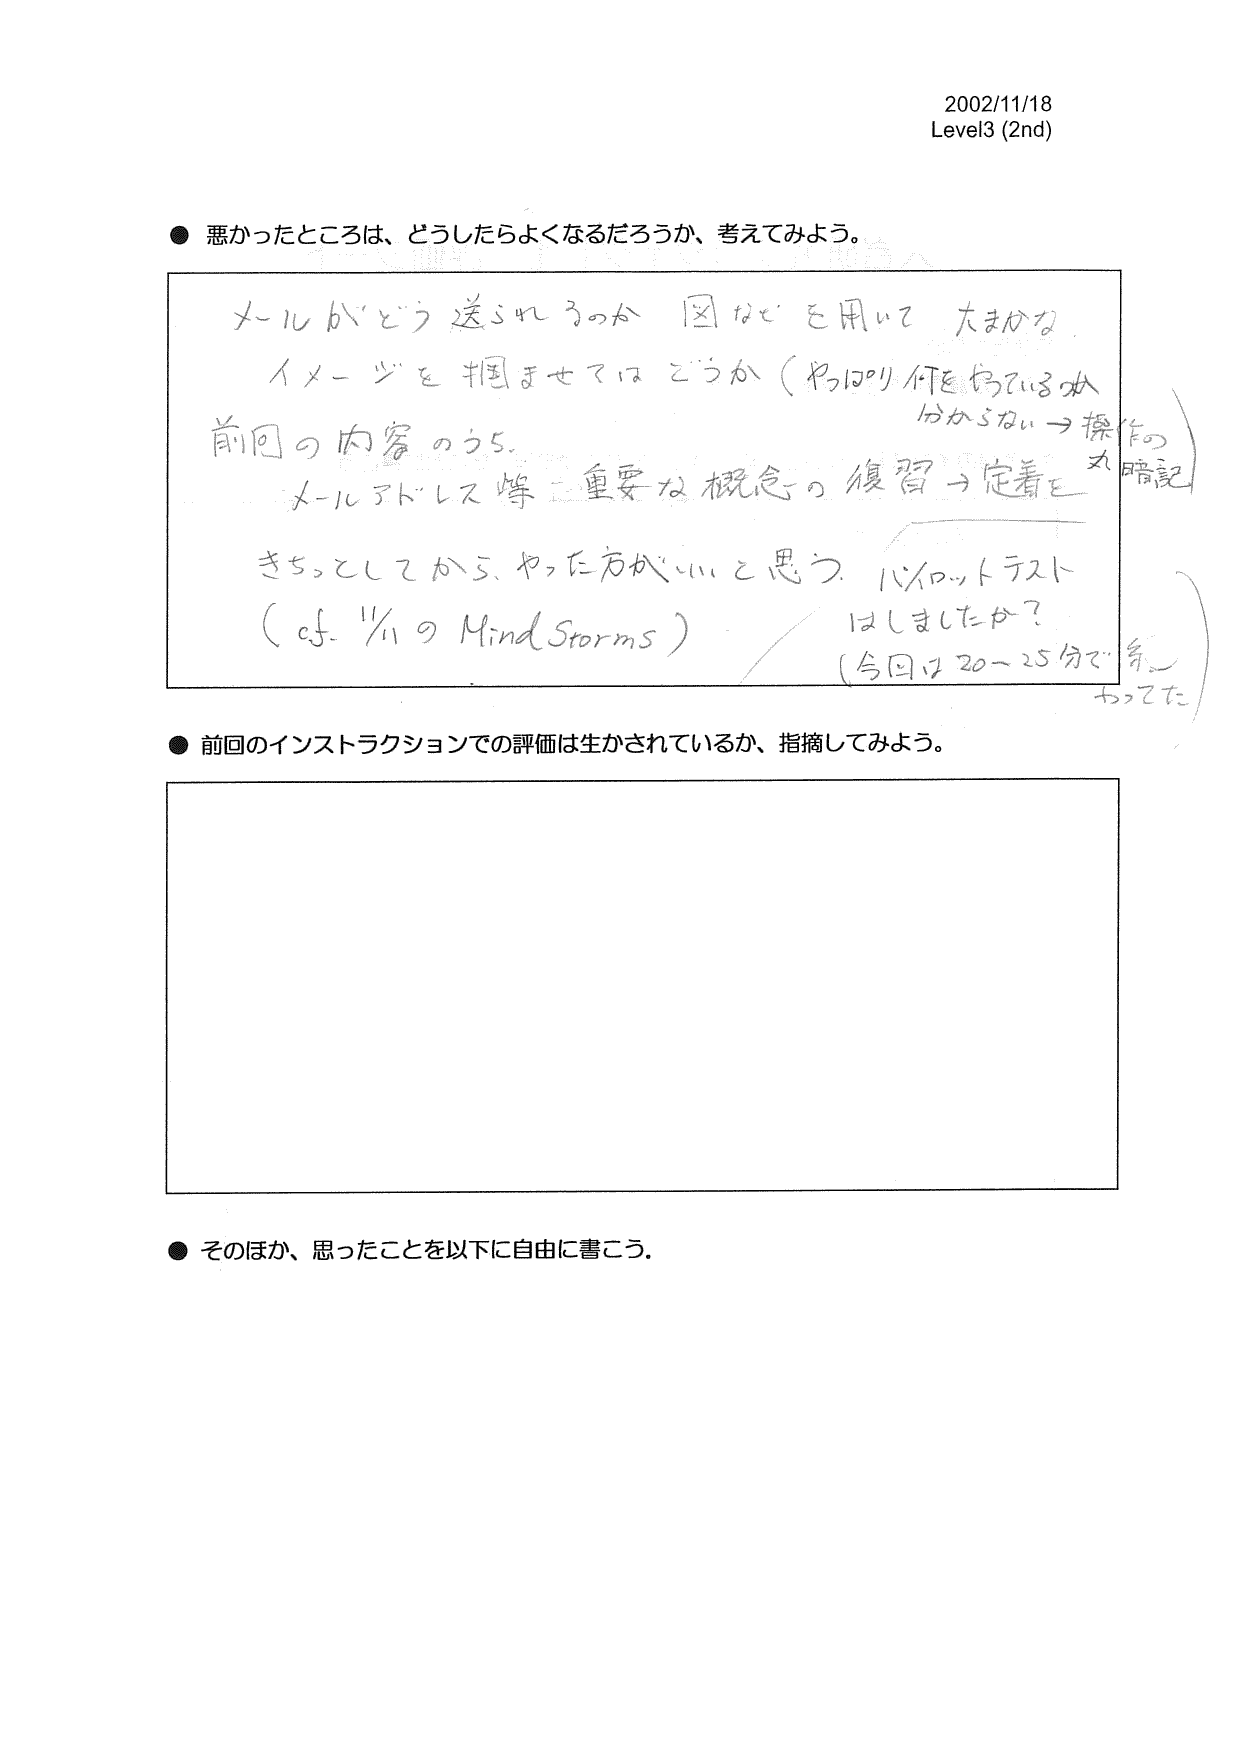 2002/11/18
Level3 (2nd)
● 悪かったところは、どうしたらよくなるだろうか、考えてみよう。
メールがどう送られるのか 図などを用いて 大まかな
イメージを掴ませてはどうか(やっぱり何をやっているのか
分からない→操作の
丸暗記)
前回の内容のうち、
メールアドレス等 重要な概念の復習→定着を
きちっとしてから、やった方がいいと思う。
(cf. 11/11のMindStorms)
パイロットテスト
はしましたか?
(今回は20~25分で終
わってた)
● 前回のインストラクションでの評価は生かされているか、指摘してみよう。
● そのほか、思ったことを以下に自由に書こう.